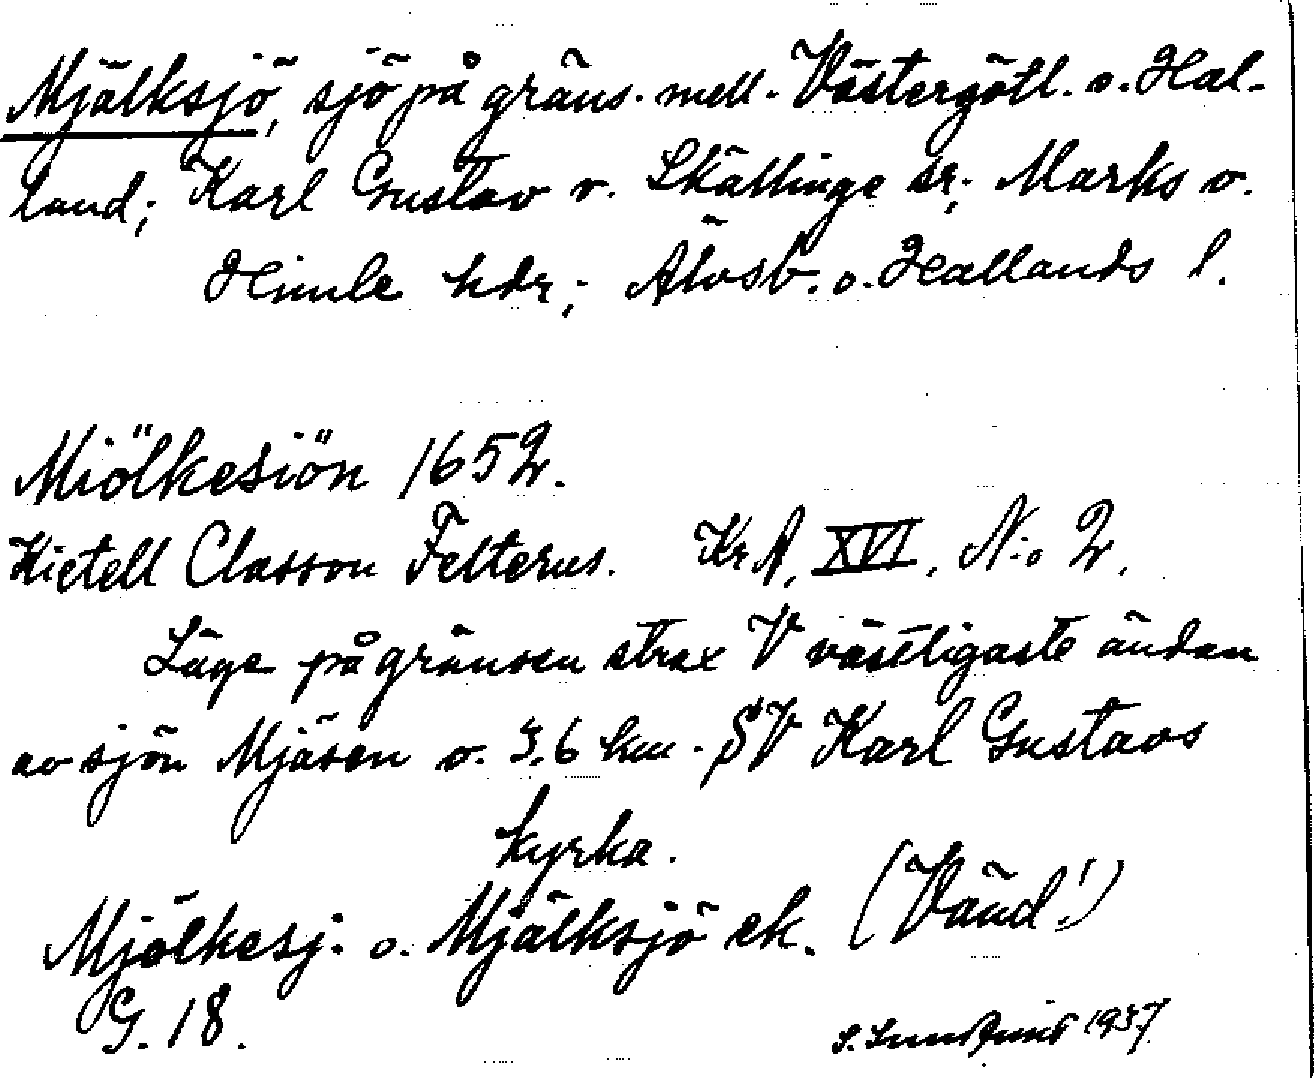 Mjälksjö, sjö på gräns. mell. Västergötl. o. Hal-
land; Karl Gustav o. Skällinge sr; Marks o.
Himle hdr; Älvsb. o. Hallands l.
Miölkesiön 1652.
Kietell Classon Felterus. KrA, XVI, N:o 2.
Läge på gränsen strax V västligaste ändan
av sjön Mjäsen o. 3.6 km. SV Karl Gustavs
kyrka.
Mjölkesj. o. Mjälksjö ek. (Vänd!)
G. 18.
S. Lundquist 1937